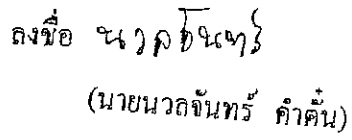 ลงชื่อ นวลจันทร์
(นายนวลจันทร์ คำตั๋น)